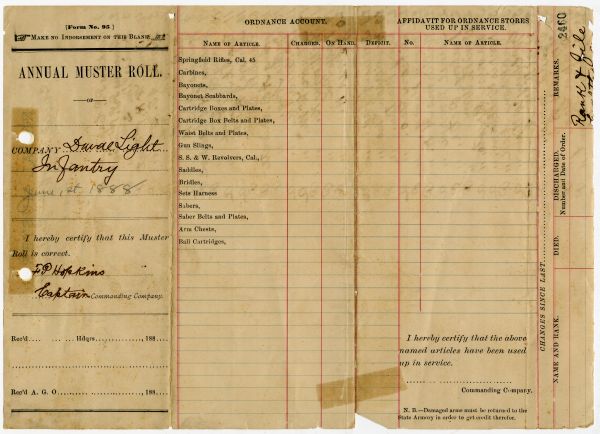 (Form No. 95)
MAKE NO INDORSEMENT ON THIS BLANK.
ANNUAL MUSTER ROLL.
—OF—
COMPANY Duval Light
Infantry
June, 1st 1888
I hereby certify that this Muster
Roll is correct.
F P Hopkins
Captain Commanding Company.
Rec'd.... .... ... Hdqrs............., 188....
Rec'd A. G. O ..................., 188....
ORDNANCE ACCOUNT.
NAME OF ARTICLE. CHARGED. ON HAND. DEFICIT.
Springfield Rifles, Cal. 45
Carbines,
Bayonets,
Bayonet Scabbards,
Cartridge Boxes and Plates,
Cartridge Box Belts and Plates,
Waist Belts and Plates,
Gun Slings,
S. S. & W. Revolvers, Cal.,
Saddles,
Bridles,
Sets Harness
Sabers,
Saber Belts and Plates,
Arm Chests,
Ball Cartridges,
AFFIDAVIT FOR ORDNANCE STORES
USED UP IN SERVICE.
No. NAME OF ARTICLE.
I hereby certify that the above
named articles have been used
up in service.
Commanding Company.
N. B.—Damaged arms must be returned to the
State Armory in order to get credit therefor.
CHANGES SINCE LAST
NAME AND RANK. DIED. DISCHARGED. REMARKS.
Number and Date of Order.
2460
Rank & File